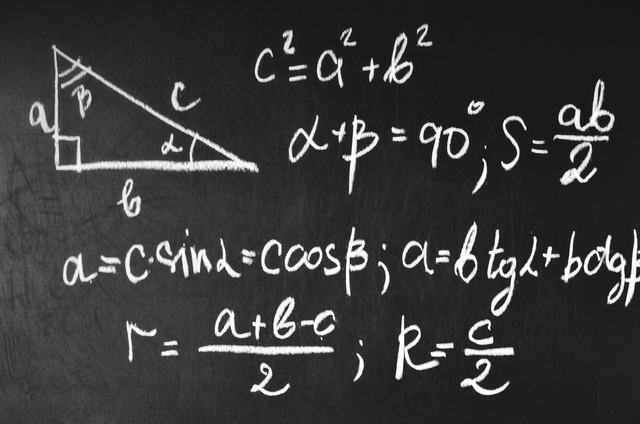 a
β
c
α
b
c²=a²+b²
α+β=90°; S=ab/2
a=c·sinα=ccosβ; a=btgα+bctgβ
r=a+b-c/2; R=c/2